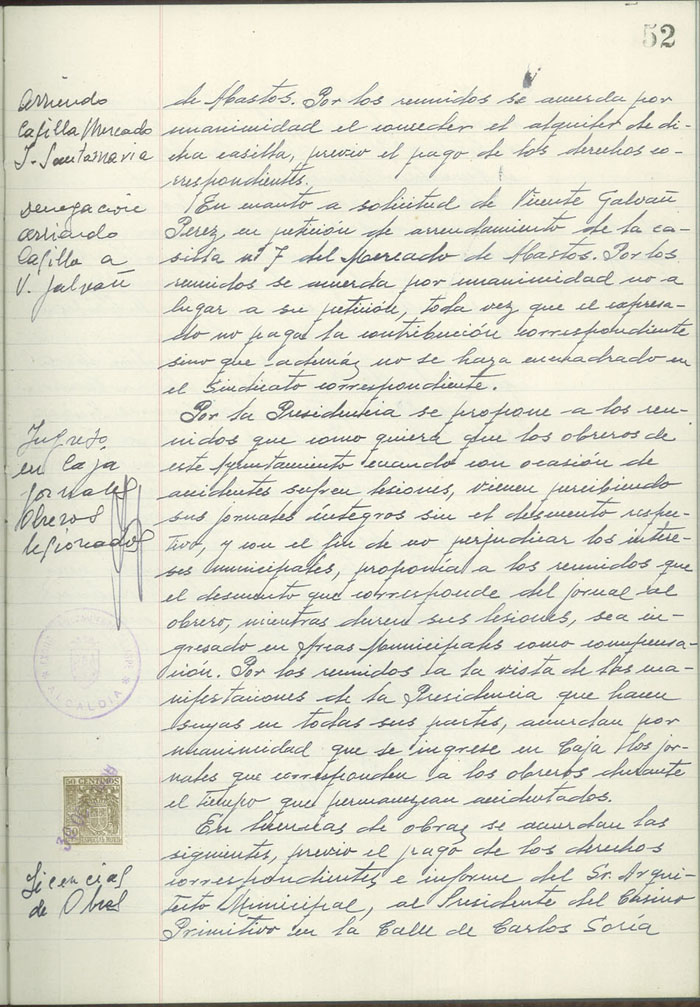 52
Arriendo
Casilla Mercado
J. Santamaria
de Abastos. Por los reunidos se acuerda por
unanimidad el conceder el alquiler de di-
cha casilla, previo el pago de los derechos co-
rrespondientes.
Denegación
arriendo
Casilla a
V. Galvañ
En cuanto a solicitud de Vicente Galvañ
Perez, en petición de arrendamiento de la ca-
silla nº 7 del Mercado de Abastos. Por los
reunidos se acuerda por unanimidad no a
lugar a su petición, toda vez que el expresa-
do no paga la contribución correspondiente
sino que además no se haya encuadrado en
el Sindicato correspondiente.
Ingreso
en Caja
jornales
Obreros
lesionados
Por la Presidencia se propone a los reu-
nidos que como quiera que los obreros de
este Ayuntamiento cuando con ocasión de
accidentes sufren lesiones, vienen percibiendo
sus jornales íntegros sin el descuento respec-
tivo, y con el fin de no perjudicar los intere-
ses municipales, proponía a los reunidos que
el descuento que corresponde del jornal al
obrero, mientras duren sus lesiones, sea in-
gresado en Arcas Municipales como compensa-
ción. Por los reunidos a la vista de las ma-
nifestaciones de la Presidencia que hacen
suyas en todas sus partes, acuerdan por
unanimidad que se ingrese en Caja los jor-
nales que corresponden a los obreros durante
el tiempo que permanezcan accidentados.
ALCALDIA
50 CENTIMOS
Licencias
de Obras
En licencias de obras se acuerdan las
siguientes, previo el pago de los derechos
correspondientes e informe del Sr. Arqui-
tecto Municipal, al Presidente del Casino
Primitivo en la Calle de Carlos Soría